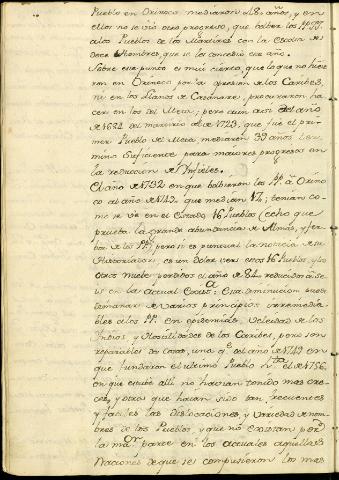 Pueblo en Orinoco mediaron 28 años, y en
ellos no se vió otro progreso, que bolber los PP.
a los Pueblos de los Martires con la Escolta de
doce hombres que se les concedio ese año.
Sobre este punto es mui cierto, que lo que no hicie
ron en Orinoco por la opresion de los Caribes,
ni en los Llanos de Casanare, procuraron ha
cer en los del Meta; pero aun asi del año
de 1684 del martirio al de 1723, que fue el pri
mer Pueblo de Meta mediaron 39 años ter
mino suficiente para maiores progresos en
la reduccion de Ynfieles.
El año de 1732 en que bolbieron los PP. a Orino
co al año de 1749 que median 17, tenian co
mo se vé en el Estado 16 Pueblos (echo que
prueba la grande abundancia de Almas, y fer
bor de los PP.) pero si es puntual la noticia de su
Historiador, es un dolor ver esos 16 Pueblos, y los
otros nueve perdidos el año de 84 reducidos a
en la actual Epoca: Esta diminucion puede
dimanar de varios principios irremedia
bles a los PP. en epidemias, veleidad de los
Yndios, y Hostilidades de los Caribes, pero son
reparables dos cosas, una q.e el año de 1749 en
que fundaron el ultimo Pueblo h.ta el de 1756
en que estube alli no havian tenido mas cre
ces, y otra que havian sido tan frecuentes
y faciles las dislocaciones, y variedad de nom
bres de los Pueblos, y que no existan por
la maor. parte en los actuales aquellas
Naciones de que se compusieron los mas